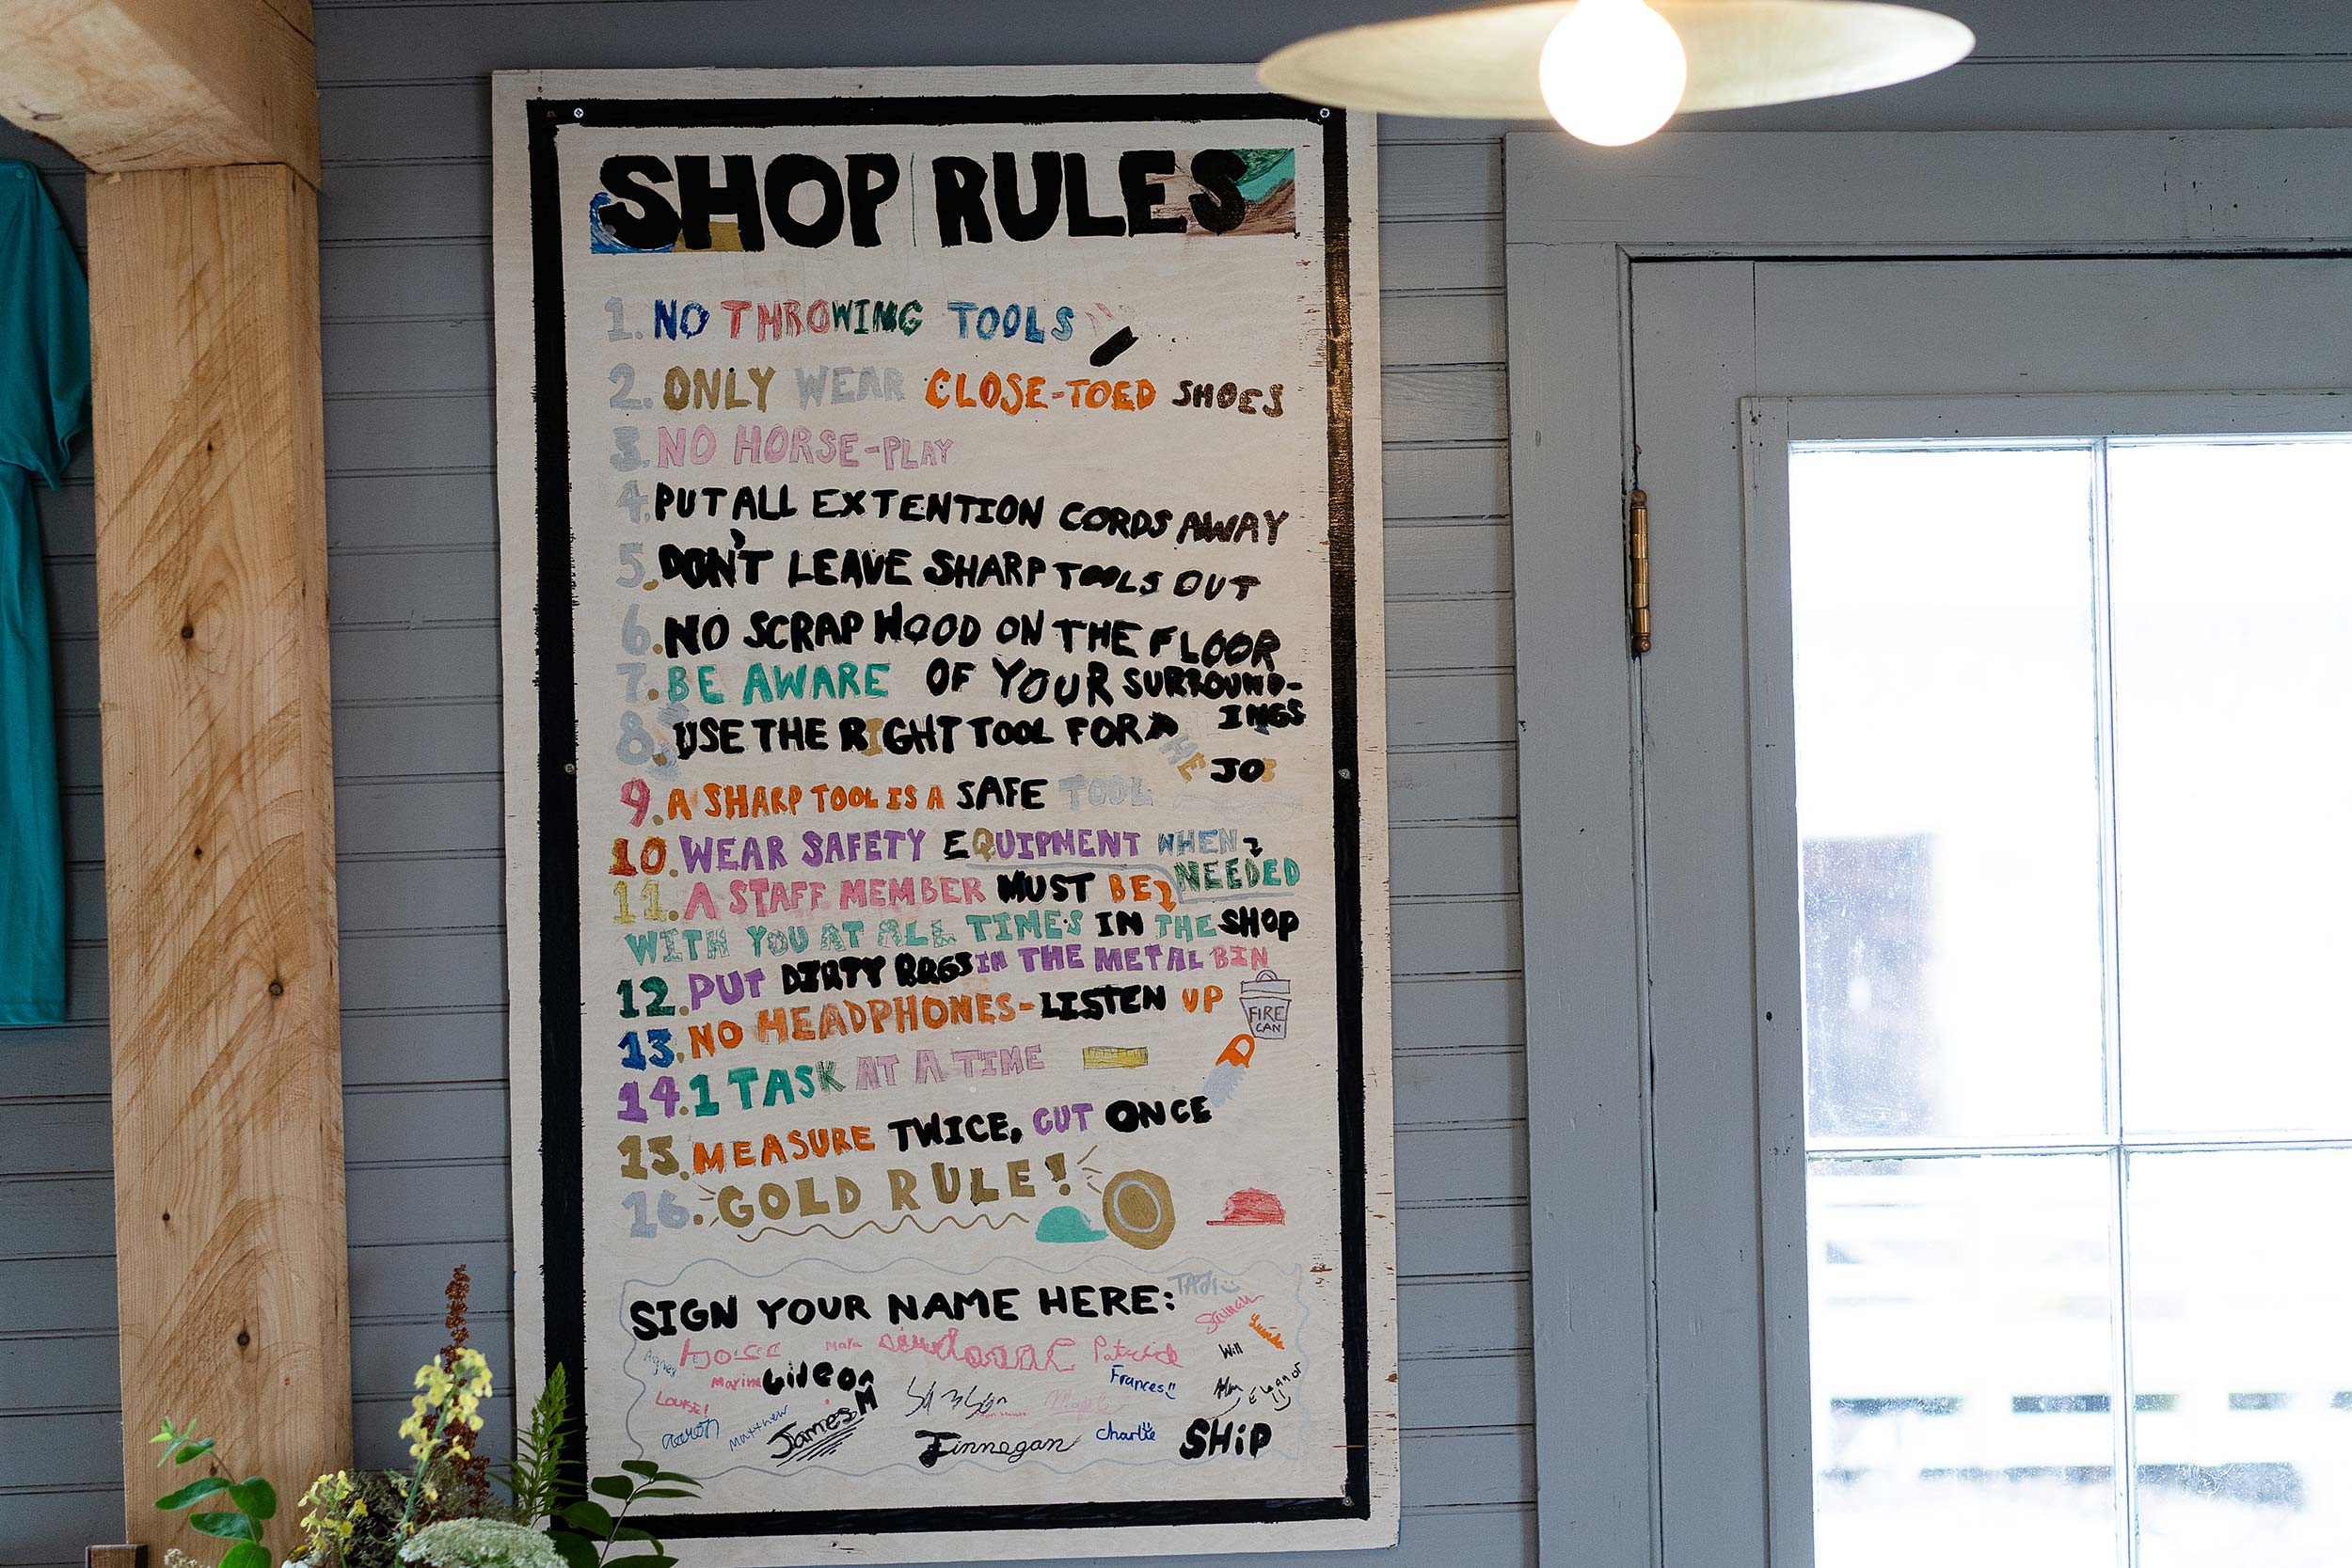 SHOP RULES
1. NO THROWING TOOLS
2. ONLY WEAR CLOSE-TOED SHOES
3. NO HORSE-PLAY
4. PUT ALL EXTENTION CORDS AWAY
5. DON'T LEAVE SHARP TOOLS OUT
6. NO SCRAP WOOD ON THE FLOOR
7. BE AWARE OF YOUR SURROUND-
INGS
8. USE THE RIGHT TOOL FOR
THE JOB
9. A SHARP TOOL IS A SAFE TOOL
10. WEAR SAFETY EQUIPMENT WHEN
NEEDED
11. A STAFF MEMBER MUST BE
WITH YOU AT ALL TIMES IN THE SHOP
12. PUT DIRTY RAGS IN THE METAL BIN
FIRE
CAN
13. NO HEADPHONES-LISTEN UP
14. 1 TASK AT A TIME
15. MEASURE TWICE, CUT ONCE
16. GOLD RULE!
SIGN YOUR NAME HERE:
Patrick
Will
Gideon
Frances!!
Eleanor
Louise!
aaron
Matthew
James M
Finnegan
charlie
SHiP